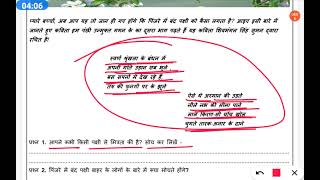 04:06
प्यारे बच्चों, अब आप यह तो जान ही गए होंगे कि पिंजरे में बंद पक्षी को कैसा लगता है? आइए इसी बारे में
जानते हुए कविता हम पंछी उन्मुक्त गगन के का दूसरा भाग पढ़ते हैं यह कविता शिवमंगल सिंह सुमन द्वारा
रचित है।
स्वर्ण श्रृंखला के बंधन में
अपनी गति उड़ान सब भूले
बस सपनों में देख रहे हैं
तरु की फुनगी पर के झूले
ऐसे थे अरमान की उड़ते
नीले नभ की सीमा पाने
लाल किरण सी चोंच खोल
चुगते तारक-अनार के दाने
प्रश्न 1. आपने कभी किसी पक्षी से मित्रता की है? सोच कर लिखें -
प्रश्न 2. पिंजरे में बंद पक्षी बाहर के लोगों के बारे में क्या सोचते होंगे?